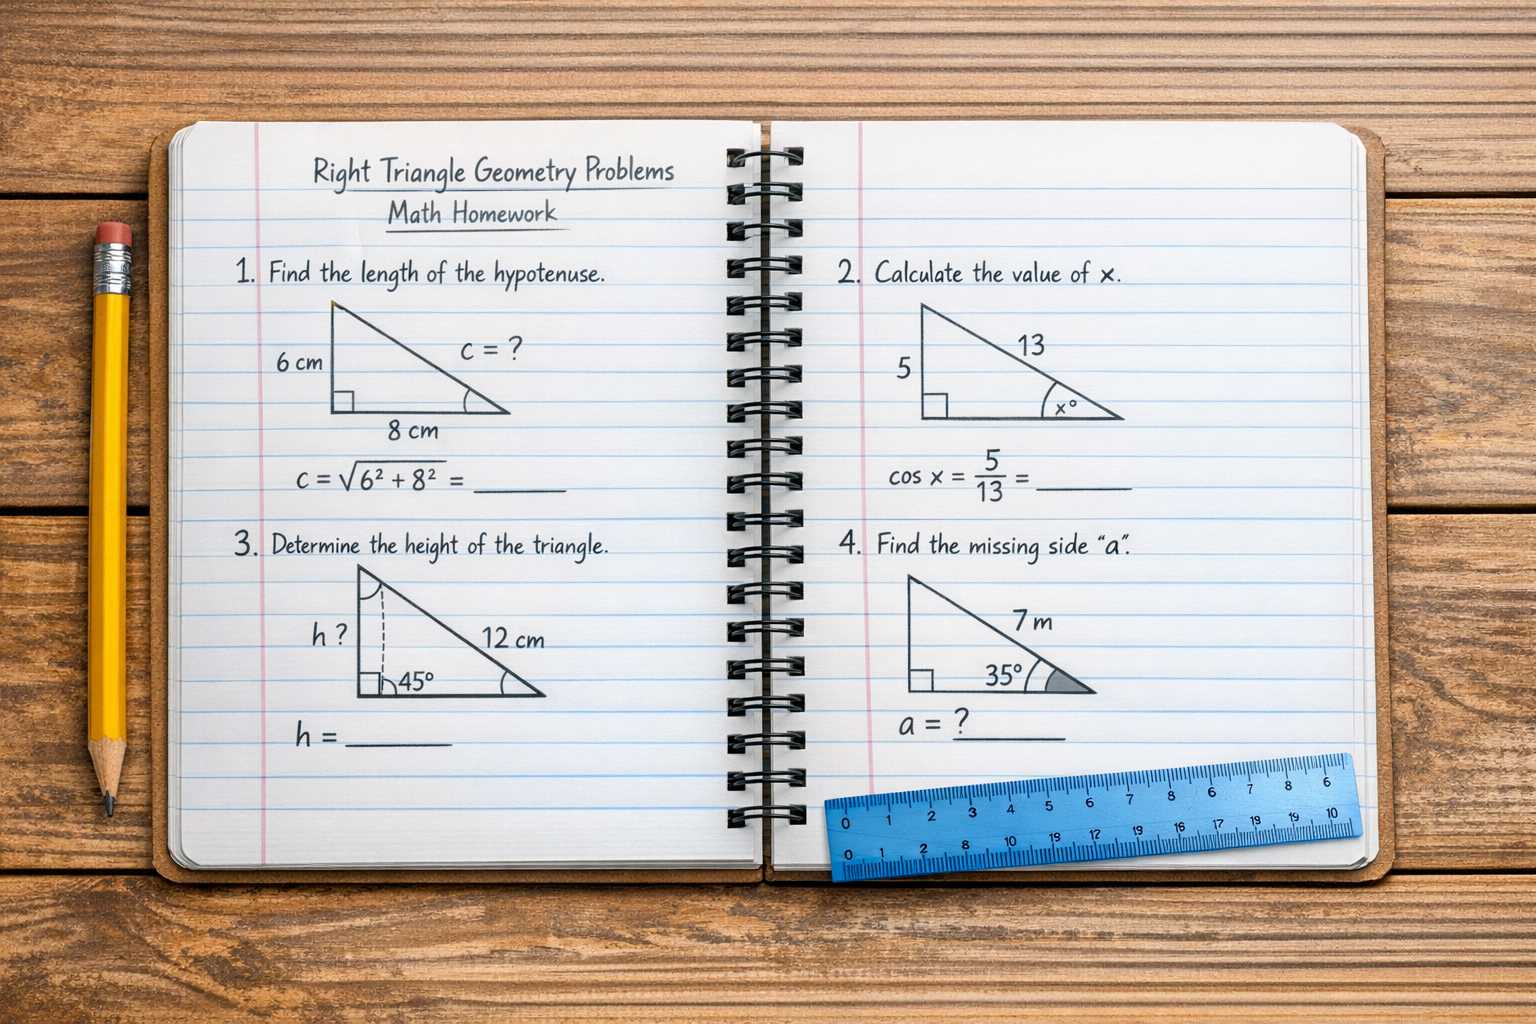 Right Triangle Geometry Problems
Math Homework
1. Find the length of the hypotenuse.
6 cm
c = ?
8 cm
c = √6² + 8² = ______
3. Determine the height of the triangle.
h ?
12 cm
45°
h = ______
2. Calculate the value of x.
5
13
x°
cos x = 5/13 = ______
4. Find the missing side “a”.
7 m
35°
a = ?______
0 1 2 3 4 5 6 7 8 6 7 8 6
0 1 2 8 10 19 12 19 16 17 19 19 10